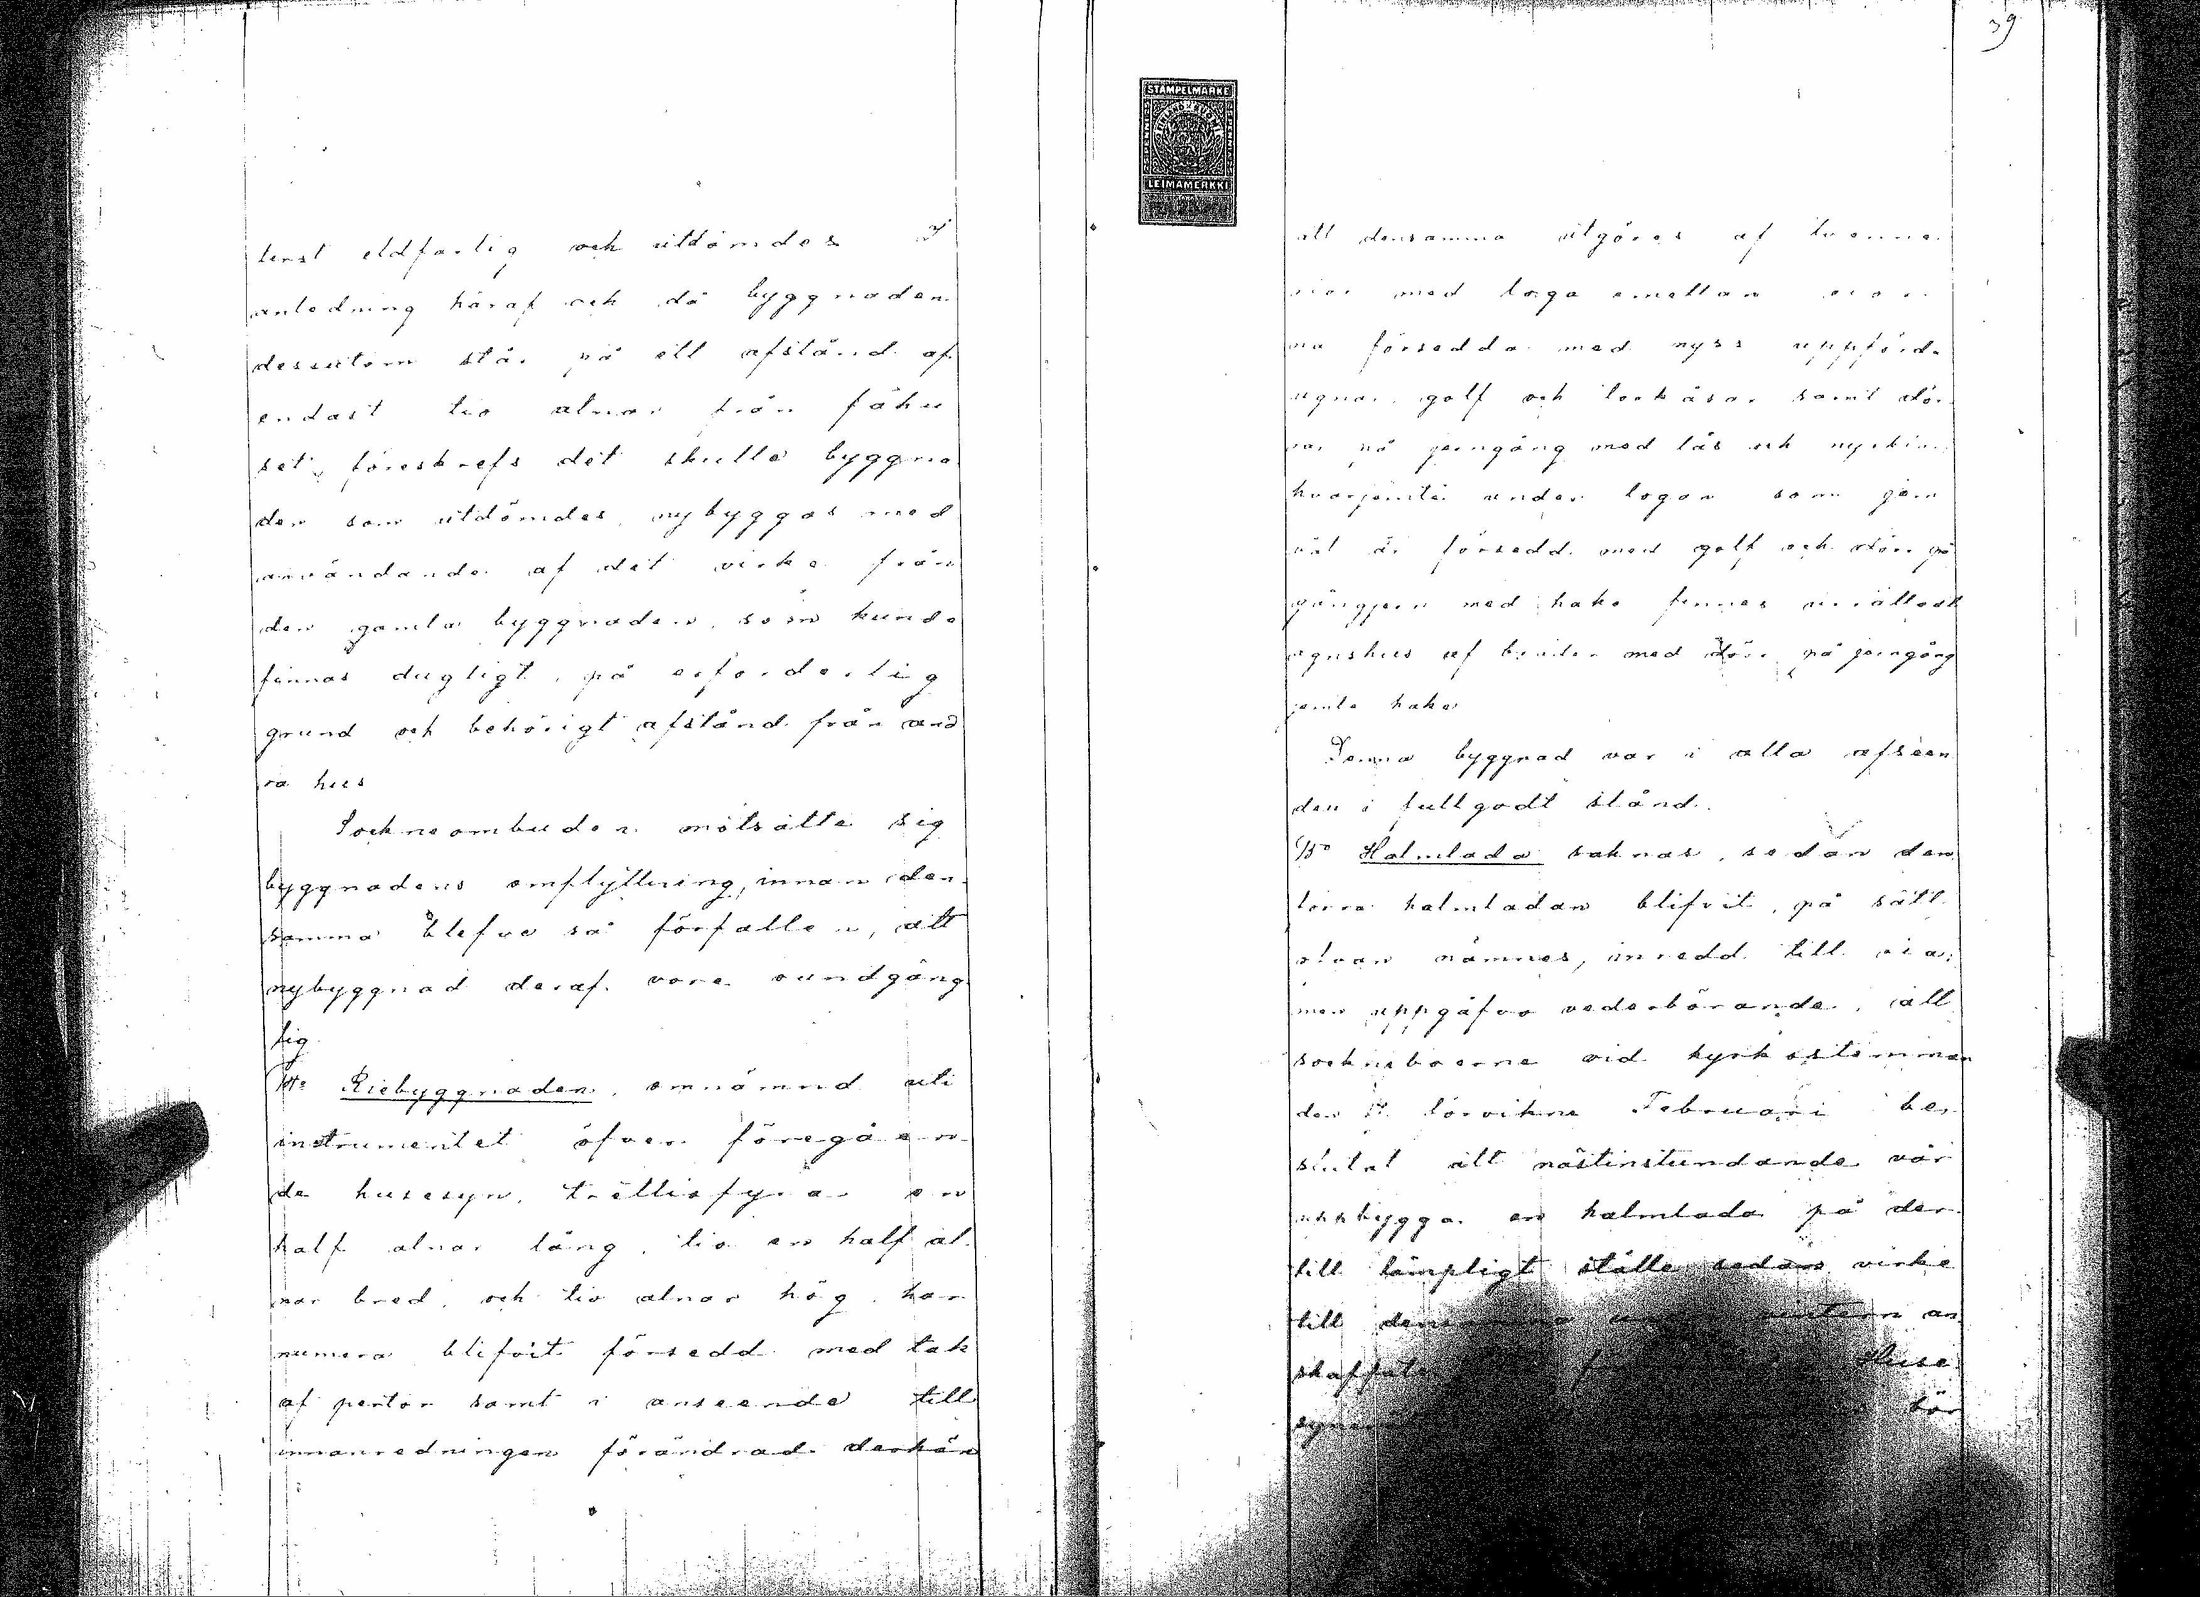 terst eldfarlig och utdömdes I
anledning häraf och då byggnaden
dessutom står på ett afstånd af
endast tio alnar från fähu
set, föreskrefs det skulle byggna
den som utdömdes, nybyggas med
användande af det virke från
den gamla byggnaden, som kunde
finnas dugligt, på erforderlig
grund och behörigt afstånd från and
ra hus
Sockneombuden motsatte sig
byggnadens omflyttning, innan den
samma blefve så förfallen, att
nybyggnad deraf vore oundgäng
lig
Riebyggnaden, omnämnd uti
instrumentet öfver föregåen
de husesyn, trettiofyra en
half alnar lång, tio en half al
nar bred, och tio alnar hög, har
numera blifvit försedd med tak
af pertor samt i anseende till
innanredningen förändrad derhän
39
STÄMPELMÄRKE
LEIMAMERKKI
att densamma utgöres af tvenne
rior med loge emellan rior
na försedda med nyss uppförda
ugnar, golf och torkåsar samt dör
rar på jerngång med lås och nycklar
hvarjemte under logen som jem
väl är försedd med golf och dörr på
gångjern med hake finnes inrättadt
agnshus af bräder med dörr på jerngång
jemte hake
Denna byggnad var i alla afseen
den i fullgodt stånd.
Halmlada saknas, sedan den
förra halmladan blifvit, på sätt
ofvan nämnes, inredd till ria;
men uppgåfvo vederbörande, att
socknеboerne vid kyrkostämman
den förvikne Februari be
slutat att nästinstundande vår
uppbygga en halmlada på der
till lämpligt ställe sedan virke
till densamma under vintern an
skaffats Huse
bör